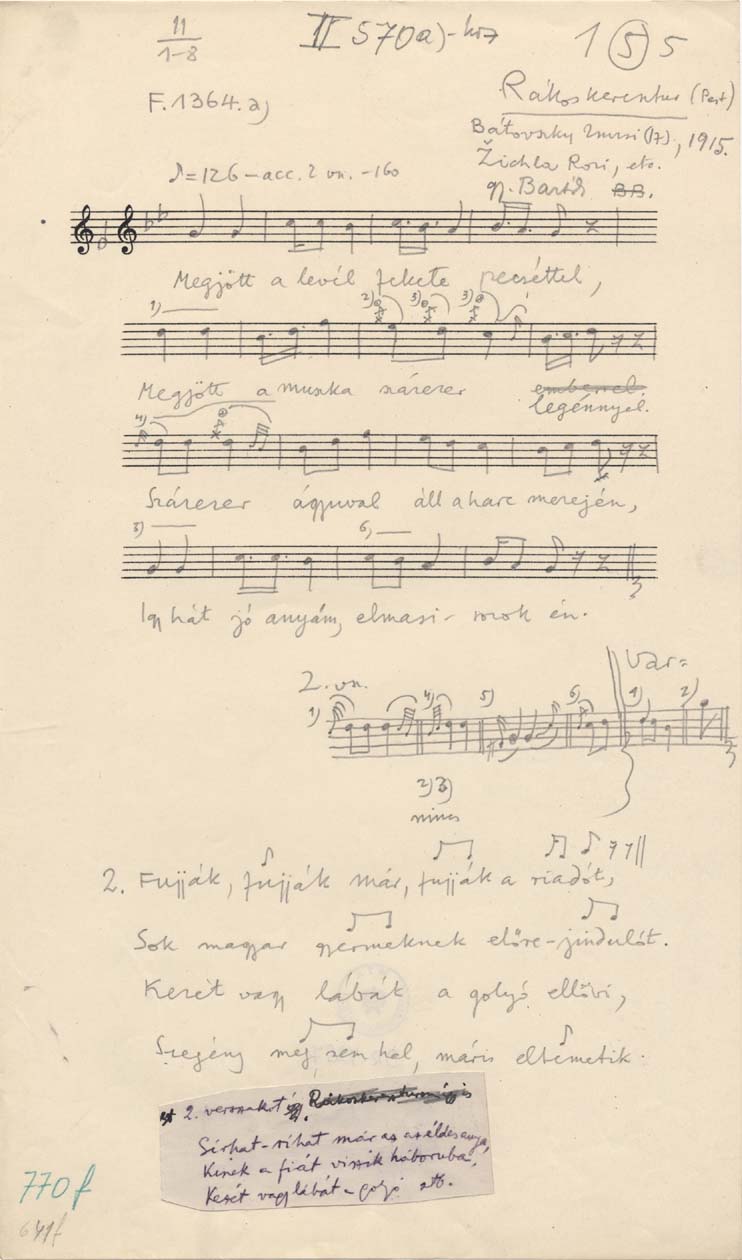 11
1-8
II 570a)-hoz
1 5 5
F. 1364. a)
Rákoskeresztur (Pest)
Bátovszky Zsuzsi (17), 1915.
Žichla Rozi, etc.
gy. Bartók BB.
♪=126 – acc. 2 vn. -160
Megjött a levél fekete pecséttel,
1) 2) 3) 3)
Megjött a muszka százezer emberrel.
legénnyel.
4)
Százezer ágyuval áll a harc mezején,
5) 6)
Igy hát jó anyám, elmasi- rozok én.
Var:
2. vn.
1) 4) 5) 6) 1) 2)
2) 3)
nincs
2. Fujják, fujják már, fujják a riadót,
Sok magyar gyermeknek előre-jindulót.
Kezét vagy lábát a golyó ellövi,
Szegény még sem hal, máris eltemetik.
2. versszakot így Rákoskereszturon így is
Sírhat-ríhat már az az édesanya,
Kinek a fiát viszik háboruba,
Kezét vagy lábát a golyó stb.
770f
641f